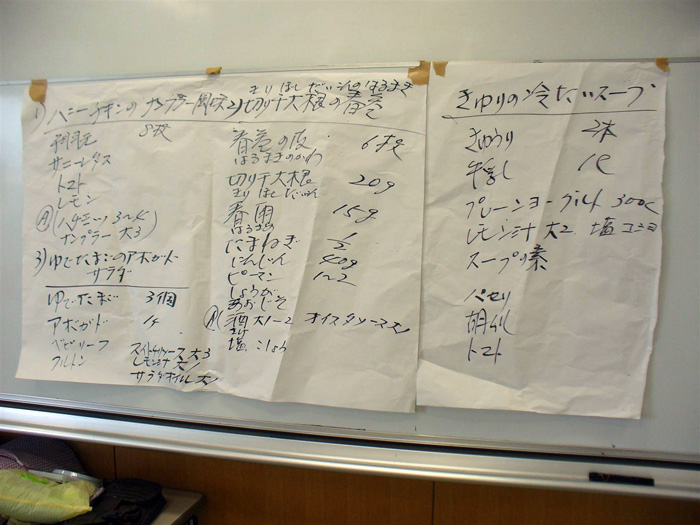 1) ハニーチキンのナンプラー風味
手羽元 8枚
サニーレタス
トマト
レモン
A (ハチミツ 3〜4
ナンプラー 大3)
3) ゆでたまごのアボガド
サラダ
ゆでたまご 3個
アボガド 1ケ
ベビリーフ
クルトン
スイートチリソース 大3
レモン汁 大1
サラダオイル 大1
きりぼしだいこんのはるまき
2) 切り干大根の春巻
春巻の皮 6枚
はるまきのかわ
切り干大根 20g
きりぼしだいこん
春雨 15g
はるさめ
たまねぎ 1/2
にんじん 40g
ピーマン 1〜2
しょうが
あおじそ
A (酒 大1〜2 オイスターソース 大1
さけ
塩 こしょう
きゅりの冷たいスープ
きゅうり 2本
牛乳 1C
プレーンヨーグルト 300c
レモン汁 大2 塩 コショウ
スープの素
パセリ
トマト